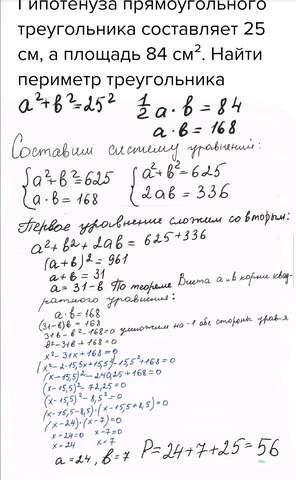 Гипотенуза прямоугольного
треугольника составляет 25
см, а площадь 84 см². Найти
периметр треугольника
a²+в²=25² ½a·в=84
a·в=168
Составим систему уравнений:
{a²+в²=625 {a²+в²=625
{a·в=168 {2aв=336
Первое уравнение сложим со вторым:
a²+в²+2aв=625+336
(a+в)²=961
a+в=31
a=31-в По теореме Виета a и в корни квад-
ратного уравнения:
a·в=168
(31-в)в=168
31в-в²-168=0 умножим на -1 обе стороны урав-я
в²-31в+168=0
x²-31x+168=0
(x²-2·15,5x+15,5²)-15,5²+168=0
(x-15,5)²-240,25+168=0
(x-15,5)²=72,25=0
(x-15,5)²-8,5²=0
(x-15,5-8,5)·(x-15,5+8,5)=0
(x-24)·(x-7)=0
x-24=0 x-7=0
x=24 x=7
a=24, в=7 P=24+7+25=56